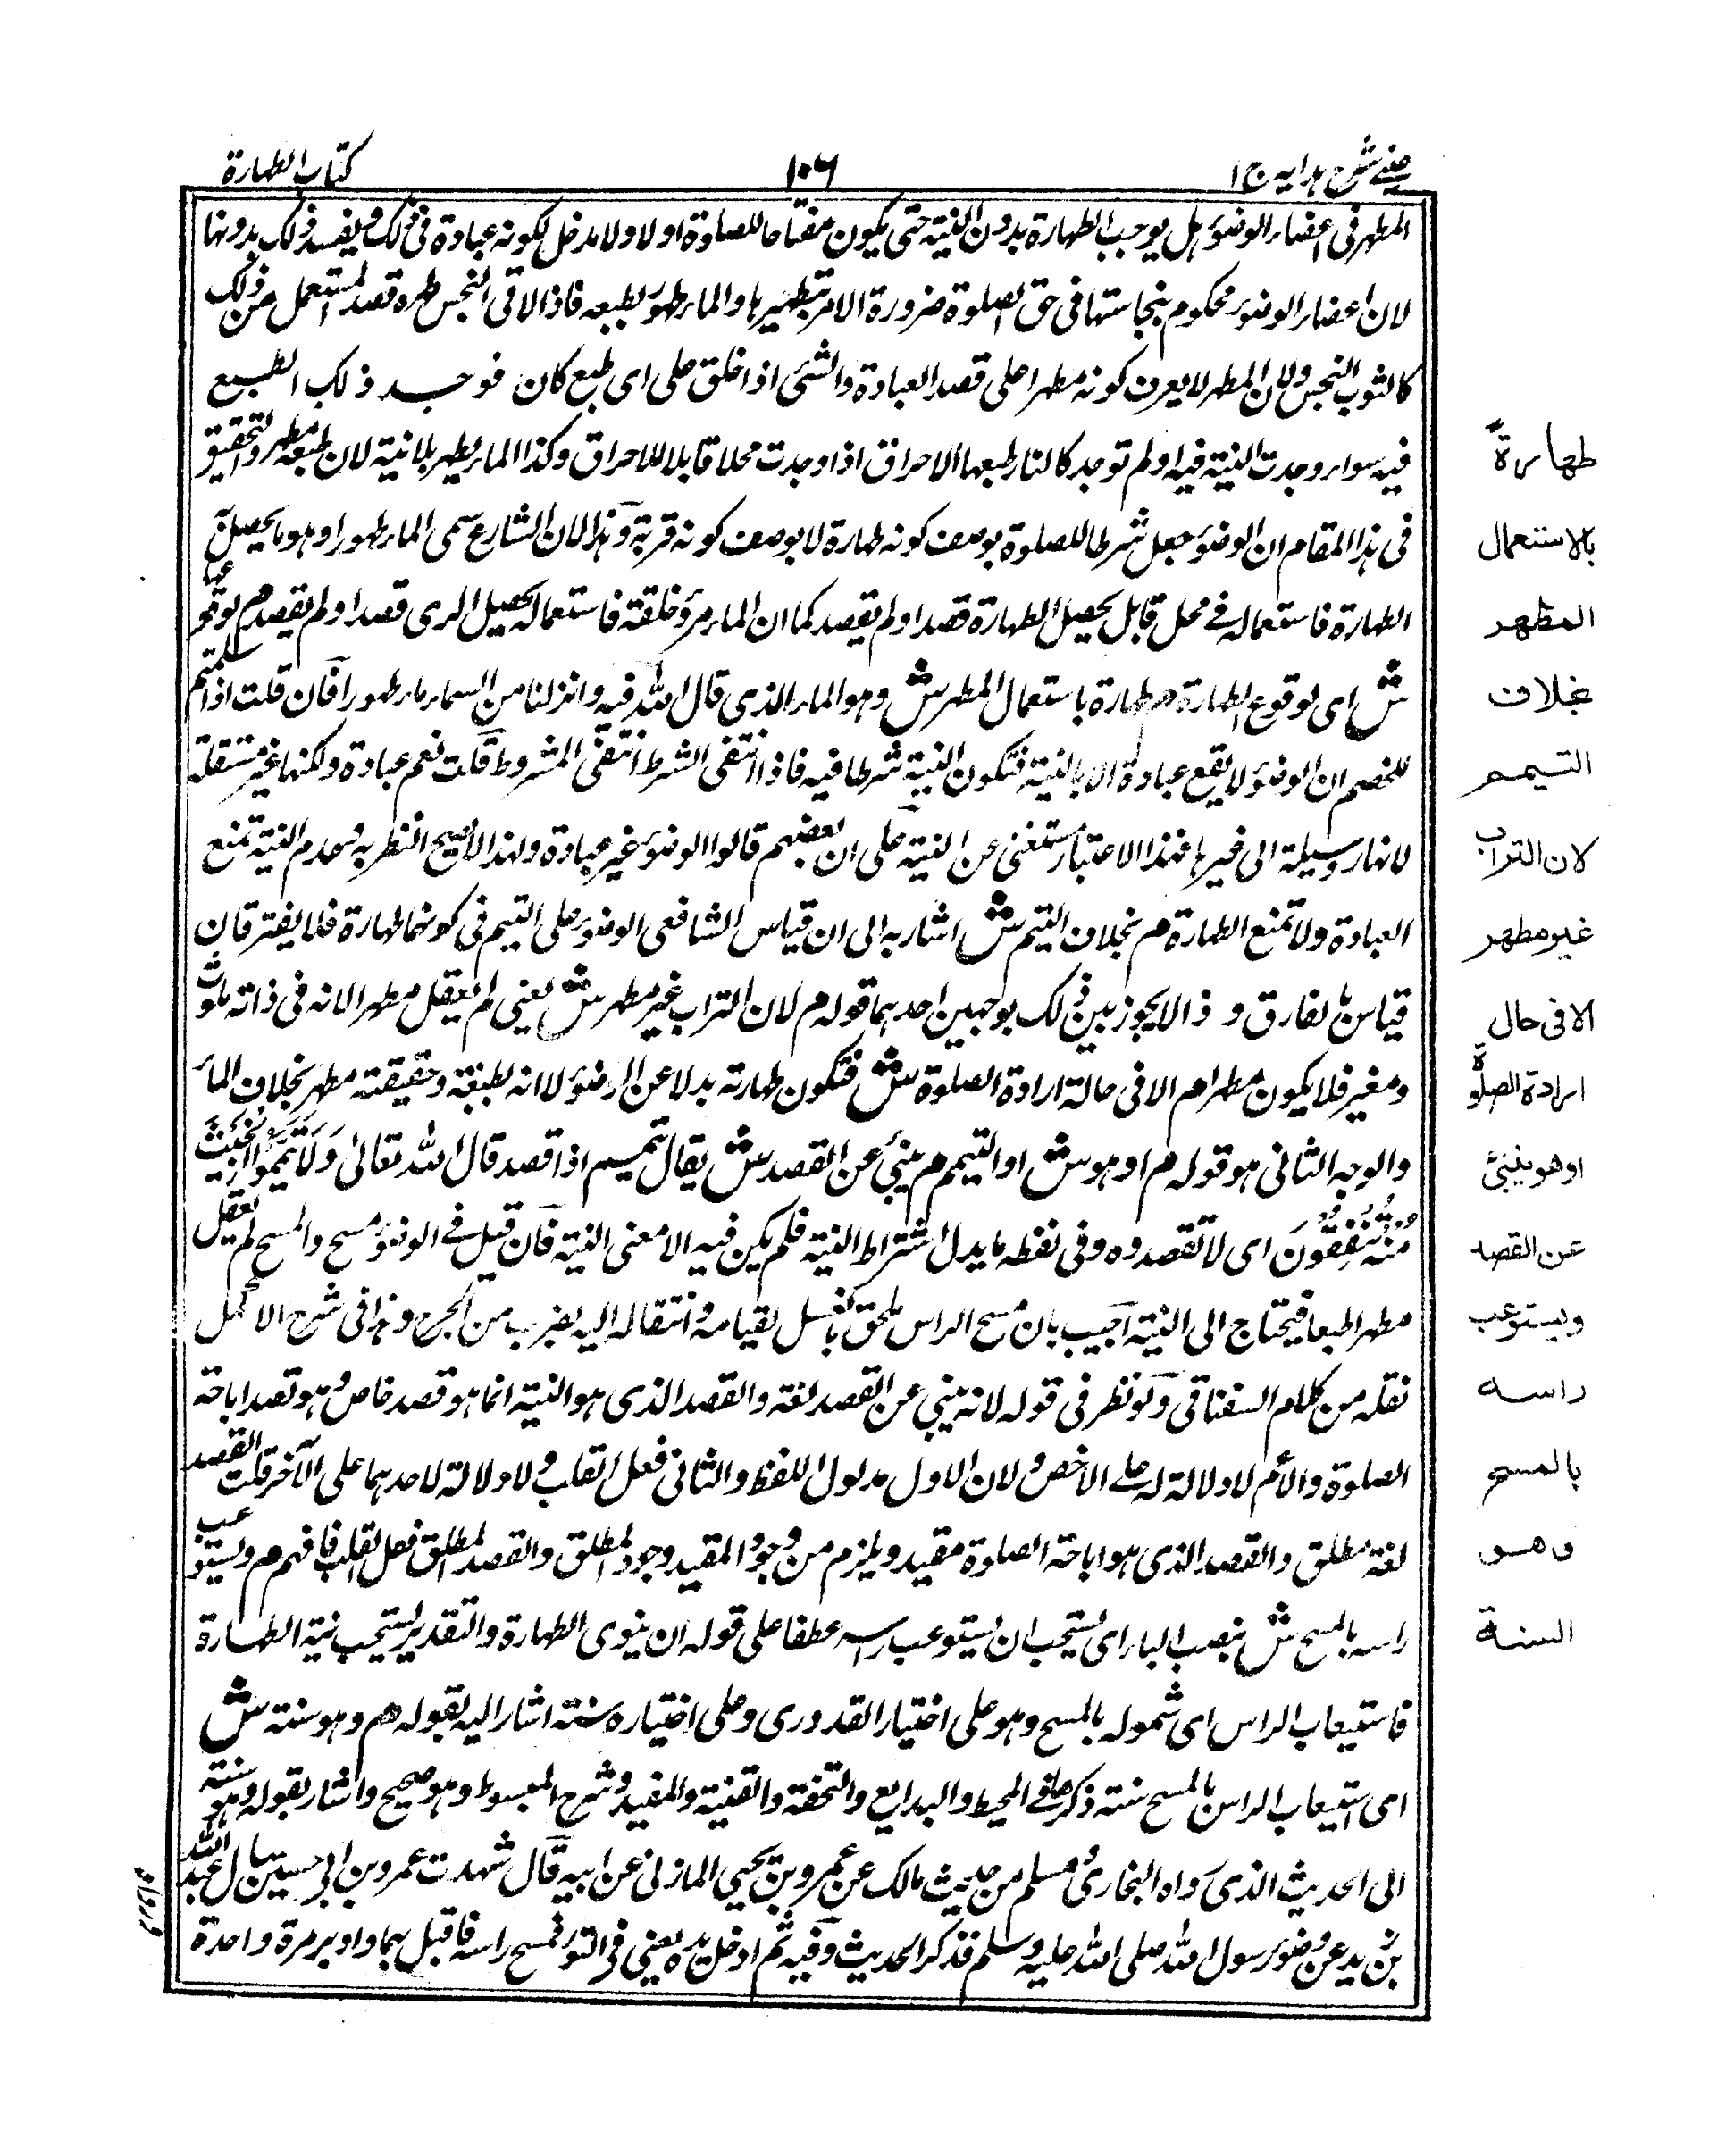 عينى شرح هدايه ج ١
١٠٦
كتاب الطهارة
المطهر فى اعضاء الوضوء هل يوجب الطهارة بدون النية حتى يكون مفتاحا للصلوة اولا ولا مدخل لكونه عبادة فى ذلك ويفسد ذلك بدونها
لان اعضاء الوضوء محكوم بنجاستها فى حق الصلوة ضرورة الامر بتطهيرها والماء طهور بطبعه فاذا لاقى النجس طهره قصد المستعمل من ذلك
كالثوب النجس ولان المطهر لا يعرف كونه مطهرا على قصد العبادة والشئ اذا خلق على اى طبع كان فوجد ذلك الطبع
فيه سواء وجدت النية فيه اولم توجد كالنار طبعها الاحراق اذا وجدت محلا قابلا للاحراق وكذا الماء يطهر بلا نية لان طبعه مطهر والتحقيق
فى هذا المقام ان الوضوء جعل شرطا للصلوة بوصف كونه طهارة لا بوصف كونه قربة وهذا لان الشارع سمى الماء طهورا وهو ما يحصل به
الطهارة فاستعماله فى محل قابل يحصل الطهارة قصد اولم يقصد كما ان الماء مرو خلقة فاستعماله يحصل الرى قصد اولم يقصد م لوقوعها
ش اى لوقوع الطهارة م طهارة باستعمال المطهر ش وهو الماء الذى قال الله فيه وانزلنا من السماء ماء طهورا فان قلت اذا سلمتم
للخصم ان الوضوء لا يقع عبادة الا بالنية فتكون النية شرطا فيه فاذا انتفى الشرط انتفى المشروط قلت نعم عبادة ولكنها غير مستقلة
لانها وسيلة الى غيرها فبهذا الاعتبار تستغنى عن النية على ان بعضهم قالوا الوضوء غير عبادة ولهذا لا يصح النذر به وعدم النية تمنع
العبادة ولا تمنع الطهارة م بخلاف التيمم ش اشار به الى ان قياس الشافعى الوضوء على التيمم فى كونهما طهارة فلا يفترقان
قياس بالفارق وذا لا يجوز بين ذلك بوجهين احدهما قوله م لان التراب غير مطهر ش يعنى لم يعقل مطهرا لانه فى ذاته ملوث
ومغير فلا يكون مطهرا م الا فى حالة ارادة الصلوة ش فتكون طهارته بدلا عن الوضوء لا انه بطبعه وحقيقته مطهر بخلاف الماء
والوجه الثانى هو قوله م او هو ش او التيمم م ينبئ عن القصد ش يقال تيمم اذا قصد قال الله تعالى وَلَا تَيَمَّمُوا الْخَبِيثَ
مِنْهُ تُنْفِقُونَ اى لا تقصدوه وفى لفظه ما يدل اشتراط النية فلم يكن فيه الا معنى النية فان قيل فى الوضوء مسح والمسح لم يعقل
مطهرا طبعا فيحتاج الى النية اجيب بان مسح الراس ملحق بالغسل لقيامه وانتقاله اليه بضرب من الحرج وهذا فى شرح الاكمل
نقله من كلام السغناقى ولو نظر فى قوله لانه ينبئ عن القصد لغة والقصد الذى هو النية انما هو قصد خاص وهو قصد اباحة
الصلوة والاعم لا دلالة له على الاخص ولان الاول مدلول اللفظ والثانى فعل القلب ولا دلالة لاحدهما على الآخر قلت القصد
لغة مطلق والقصد الذى هو اباحة الصلوة مقيد ويلزم من وجود المقيد وجود المطلق والقصد المطلق فعل القلب فافهم م ويستوعب
راسه بالمسح ش بنصب الباء اى يستحب ان يستوعب راسه عطفا على قوله ان ينوى الطهارة والتقدير يستحب نية الطهارة
فاستيعاب الراس اى شموله بالمسح وهو على اختيار القدورى وعلى اختياره سنة اشار اليه بقوله م وهو سنة ش
اى استيعاب الراس بالمسح سنة ذكره فى المحيط والبدايع والتحفة والقنية والمفيد وشرح المبسوط وهو صحيح واشار بقوله وهو سنة
الى الحديث الذى رواه البخارى ومسلم من حديث مالك عن عمرو بن يحيى المازنى عن ابيه قال شهدت عمرو بن ابى حسين سال عبد الله
بن زيد عن وضوء رسول الله صلى الله عليه وسلم فذكر الحديث وفيه ثم ادخل يده يعنى فى التور فمسح راسه فاقبل بهما وادبر مرة واحدة
طهارة
بالاستعمال
المطهر
بخلاف
التيمم
لان التراب
غير مطهر
الا فى حال
ارادة الصلوة
او هو ينبئ
عن القصد
ويستوعب
راسه
بالمسح
وهو
السنة